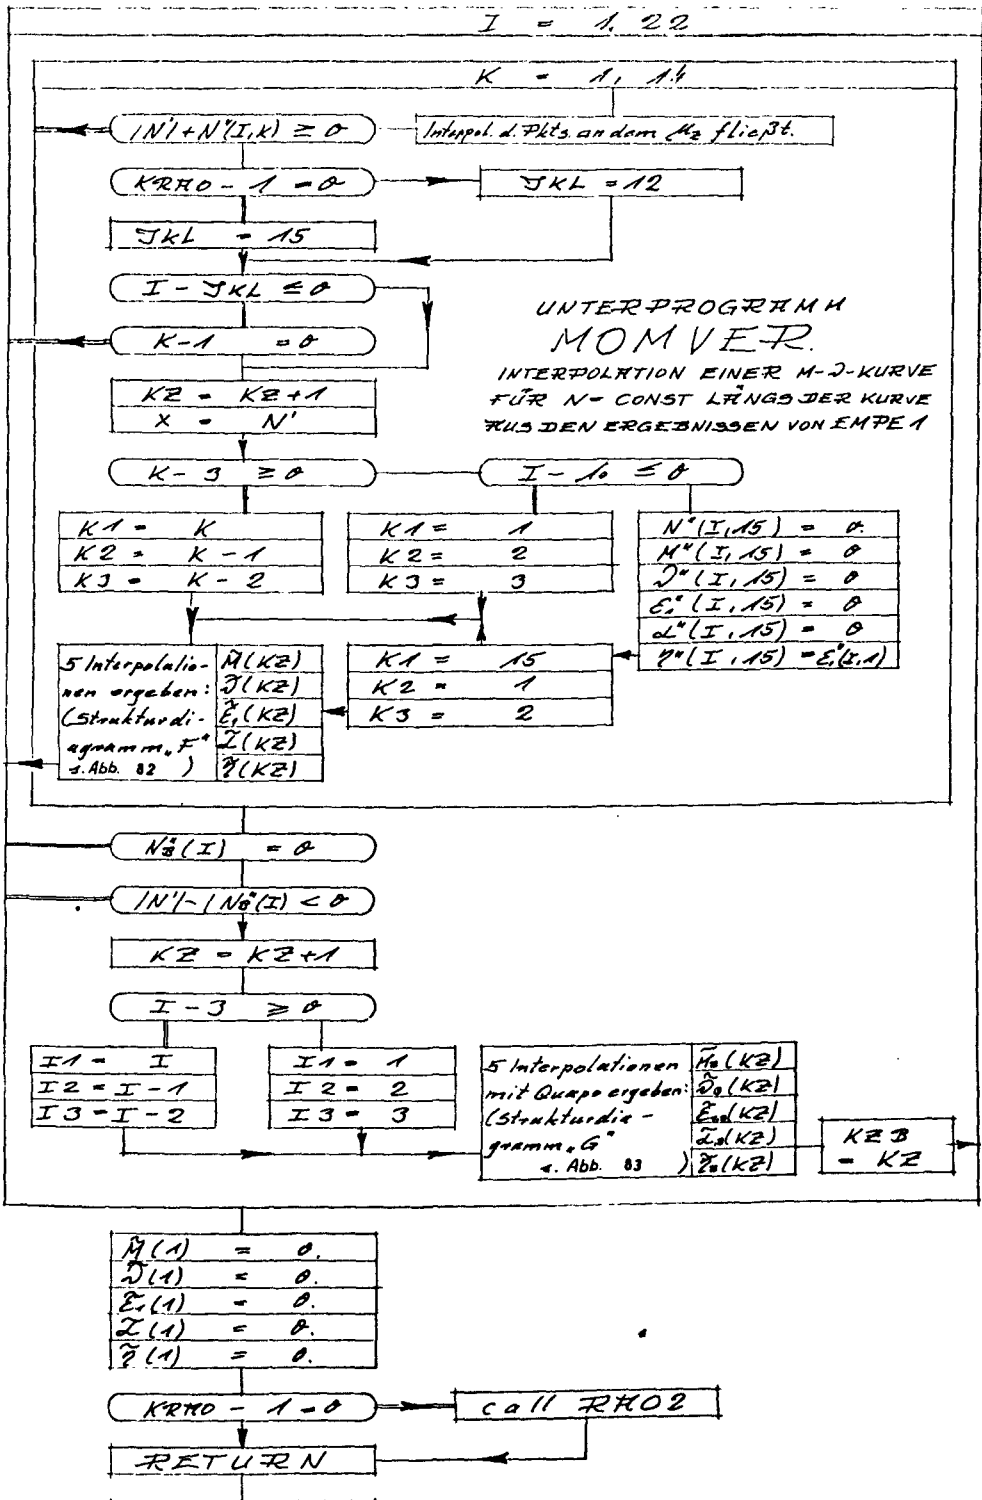 I = 1, 22
K = 1, 14
|N'|+N"(I,K) ≥ 0
Interpol. d. Pkts. an dem μz fließt.
KRHO - 1 = 0
JKL = 12
JKL = 15
I - JKL ≤ 0
K-1 = 0
UNTERPROGRAMM
MOMVER.
INTERPOLATION EINER M-ϑ-KURVE
FÜR N = CONST LÄNGS DER KURVE
AUS DEN ERGEBNISSEN VON EMPE 1
KZ = KZ+1
X = N'
K - 3 ≥ 0
I - 10 ≤ 0
K1 = K
K2 = K - 1
K3 = K - 2
K1 = 1
K2 = 2
K3 = 3
N"(I,15) = 0.
M"(I,15) = 0
ϑ"(I,15) = 0
ε₁"(I,15) = 0
α"(I,15) = 0
η"(I,15) = ε₁"(I,1)
5 Interpolatio-
nen ergeben:
(Strukturdi-
agramm „F"
s. Abb. 82 )
M̃(KZ)
ϑ̃(KZ)
ε̃₁(KZ)
α̃(KZ)
η̃(KZ)
K1 = 15
K2 = 1
K3 = 2
N_B"(I) = 0
|N'|-|N_B"(I) < 0
KZ = KZ+1
I - 3 ≥ 0
I1 = I
I2 = I-1
I3 = I-2
I1 = 1
I2 = 2
I3 = 3
5 Interpolationen
mit Quapo ergeben:
(Strukturdia-
gramm „G"
s. Abb. 83 )
(KZ)
(KZ)
(KZ)
(KZ)
(KZ)
KZB
= KZ
M̃(1) = 0.
ϑ̃(1) = 0.
ε̃₁(1) = 0.
α̃(1) = 0.
η̃(1) = 0.
KRHO - 1 = 0
call RHO2
RETURN